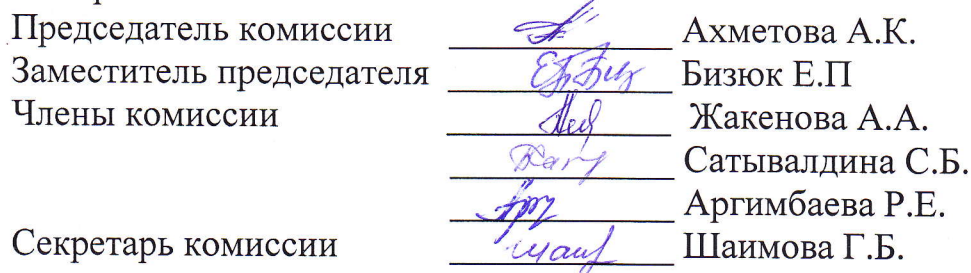 Председатель комиссии Ахметова А.К.
Заместитель председателя Бизюк Е.П
Члены комиссии Жакенова А.А.
Сатывалдина С.Б.
Аргимбаева Р.Е.
Секретарь комиссии Шаимова Г.Б.